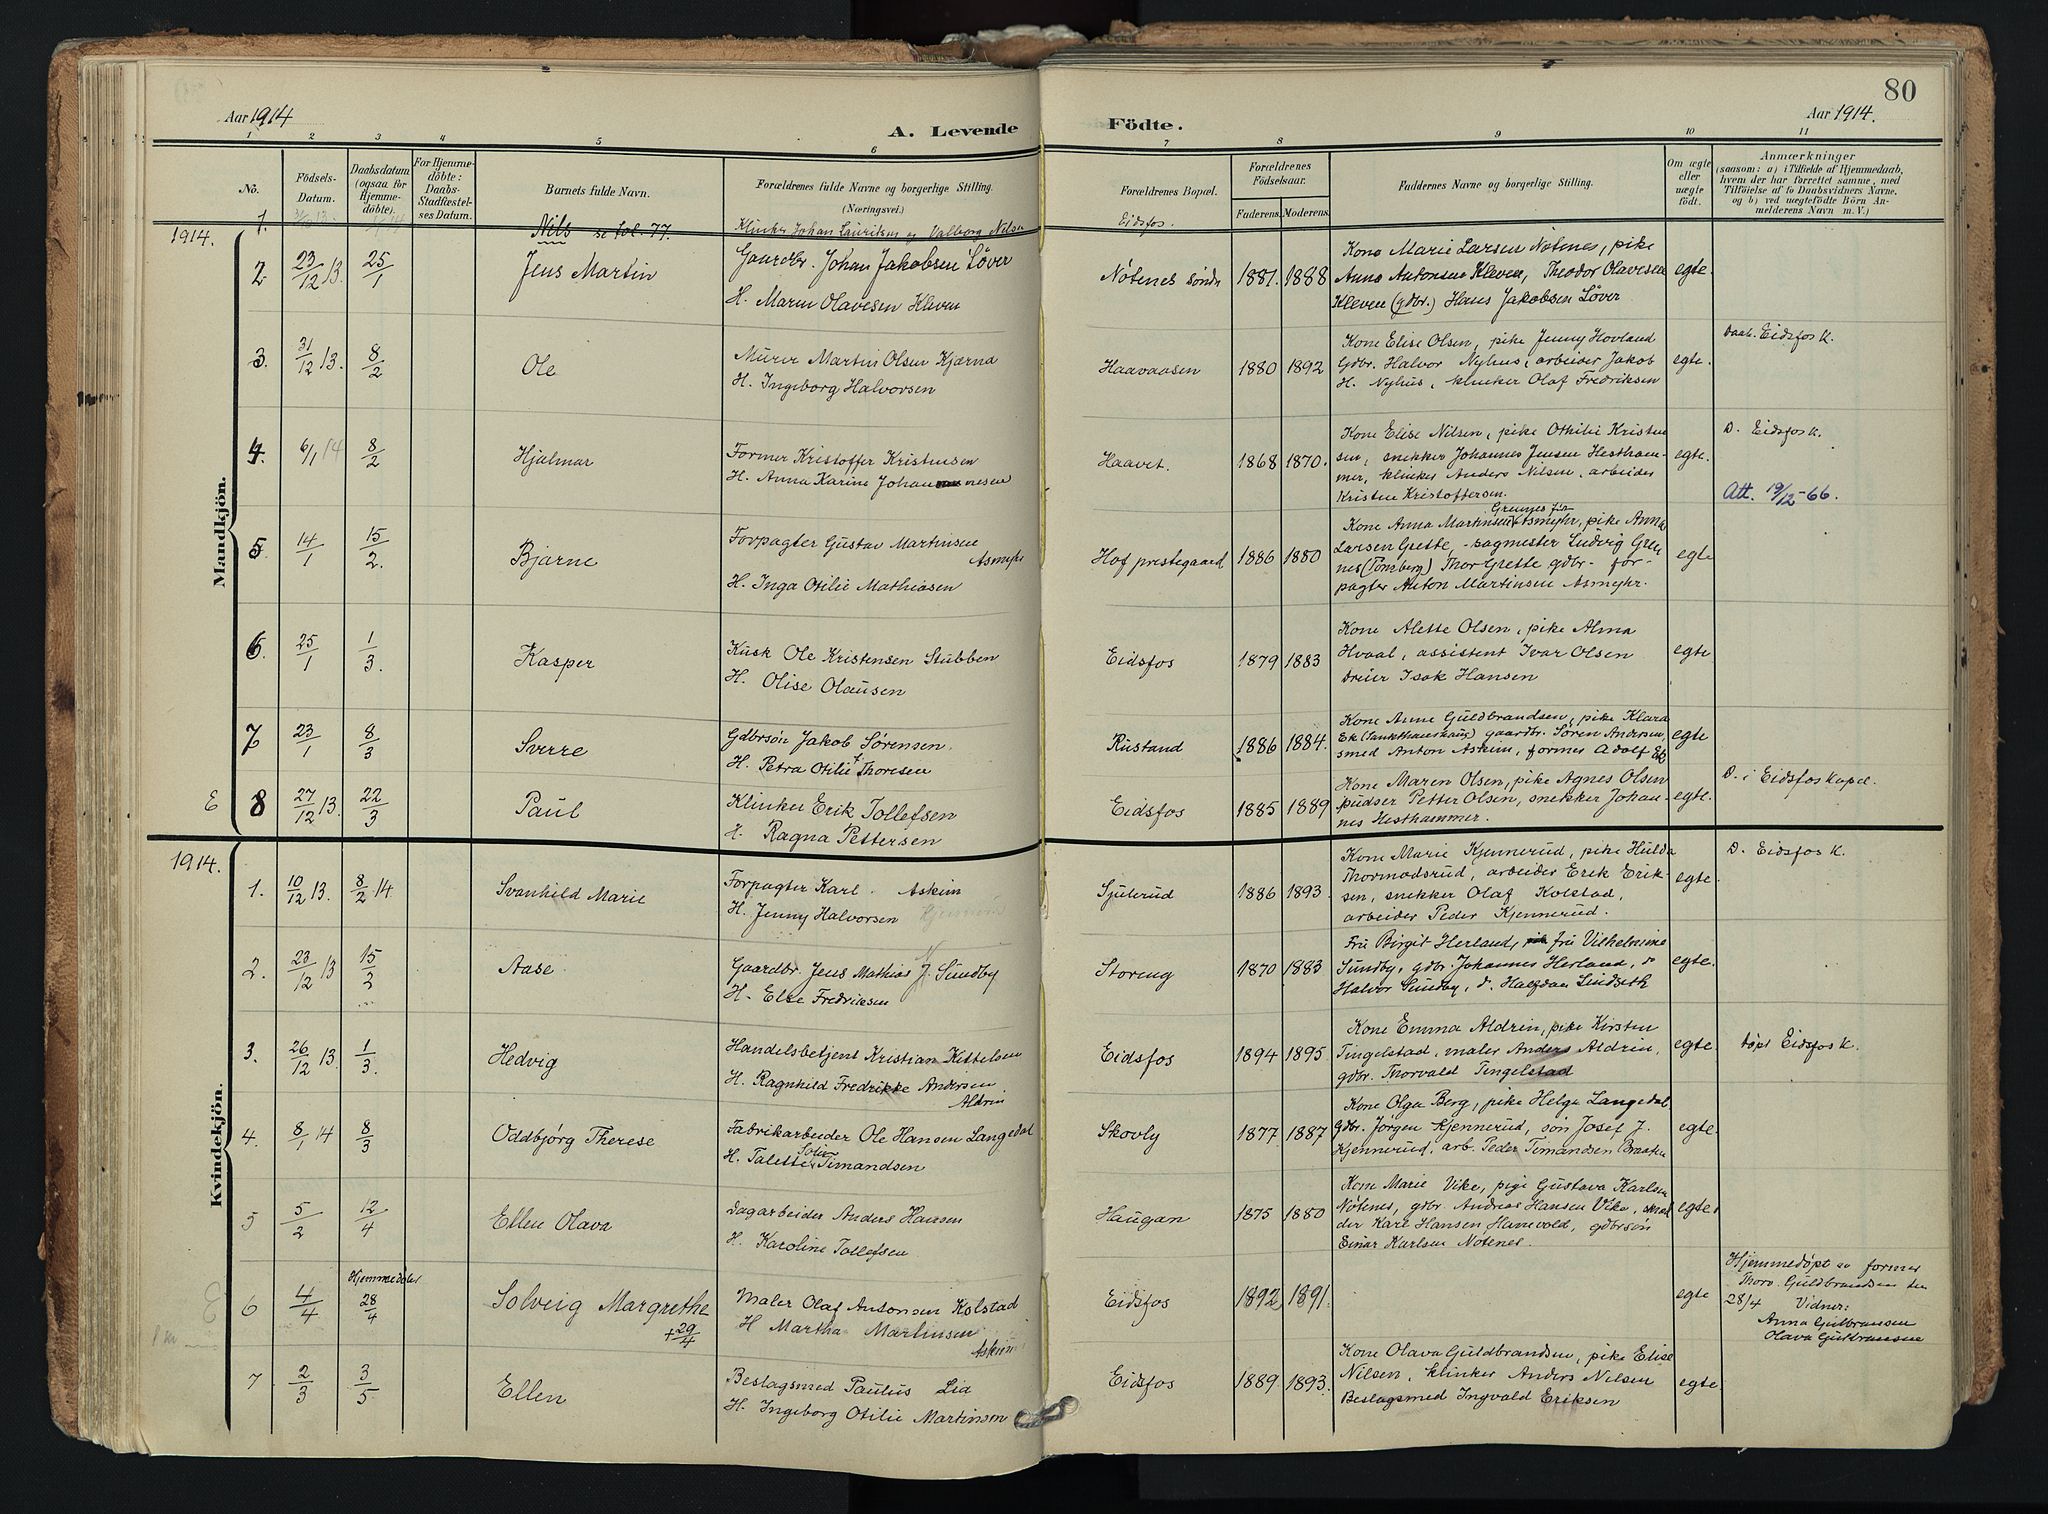 80
Aar 1914
A. Levende
Födte.
Aar 1914.
1 2 3 4 5 6 7 8 9 10 11
No.
Födsels-
Datum.
Daabsdatum
(ogsaa for
Hjemme-
döbte).
For Hjemme-
döbte:
Daabs-
Stadfæstel-
ses Datum.
Barnets fulde Navn.
Forældrenes fulde Navne og borgerlige Stilling.
(Næringsvei.)
Forældrenes Bopæl.
Forældrenes
Födselsaar.
Faderens. Moderens.
Faddernes Navne og borgerlige Stilling.
Om ægte
eller
uægte
födt.
Anmærkninger
(saasom: a) i Tilfælde af Hjemmedaab,
hvem der har forrettet samme, med
Tilföielse af to Daabsvidners Navne,
og b) ved uægtefödte Börn An-
melderens Navn m. V.)
1.
Nils se fol. 77.
Klinker Johan Lauritsen og Valborg Nilsen
Eidsfos.
1914.
Mandkjön.
2. 23/12 13. 25/1
Jens Martin
Gaardbr. Johan Jakobsen Løver
H. Maren Olavesen Kleven
Nötenes söndr 1881. 1888
Kone Marie Larsen Nötenes, pike
Anna Antonsen Kleven, Theodor Olavesen
Kleven (gdbr.) Hans Jakobsen Løver
egte.
3. 31/12 13. 8/2
Ole
Murer Martin Olsen Kjærna
H. Ingeborg Halvorsen
Haavaasen 1880 1892
Kone Elise Olsen, pike Jenny Hovland
Gdbr. Halvor Nyhus, arbeider Jakob
H. Nyhus, klinker Olaf Fredriksen
egte.
Daab. Eidsfos K.
4. 6/1 14 8/2
Hjalmar
Former Kristoffer Kristensen
H. Anna Karine Johannesen
Haavet. 1868 1870.
Kone Elise Nilsen, pike Othilie Kristen
sen, snekker Johannes Jensen Hestham-
mer, klinker Anders Nilsen, arbeider
Kristen Kristoffersen.
egte.
D. Eidsfos K.
Att. 19/12-66.
5. 14/1 15/2.
Bjarne
Forpagter Gustav Martinsen
Asmyhr
H. Inga Otilie Mathiasen
Hof prestegaard 1886 1880
Kone Anna Martinsen Asmyhr, pike Anna
Larsen Grette, sagmester Ludvig Gren
nes (Tönsberg) Thor Grette gdbr. for-
pagter Anton Martinsen Asmyhr.
egte
6. 25/1 1/3.
Kasper
Kusk Ole Kristensen Stubben
H. Olise Olausen
Eidsfos 1879 1883
Kone Alette Olsen, pike Alma
Hvaal, assistent Ivar Olsen
Dreier Isak Hansen
egte
7. 23/1 8/3
Sverre
Gdbrsön Jakob Sörensen.
H. Petra Otilie Thoresen
Rustand 1886 1884.
Kone Anne Guldbrandsen, pike Klara
Ek (Sankthanshaug) gaardbr. Sören Andersen,
smed Anton Askim, former Adolf Ek
egte
E 8 27/12 13. 22/3
Paul
Klinker Erik Tollefsen
H. Ragna Pettersen
Eidsfos 1885 1889
Kone Maren Olsen, pike Agnes Olsen
pudser Petter Olsen, snekker Johan-
nes Hesthammer.
egte.
D. i Eidsfos Kapel.
1914.
Kvindekjön.
1. 10/12 13. 8/2 14
Svanhild Marie
Forpagter Karl. Askim
H. Jenny Halvorsen
Sjulerud 1886 1893
Kone Marie Kjennerud, pike Hulda
Thormodsrud, arbeider Erik Erik-
sen, snekker Olaf Kolstad,
arbeider Peder Kjennerud.
egte.
D. Eidsfos K.
2. 23/12 13 15/2
Aase
Gaardbr. Jens Mathias J. Sundby
H. Else Fredriksen
Storeng 1870 1883
Fru Birgit Herland, fru Vilhelmine
Sundby, gdbr. Johannes Herland, d.
Halvor Sundby, d. Halfdan Lindseth
egte.
3. 26/12 13 1/3.
Hedvig
Handelsbetjent Kristian Kittelsen
H. Ragnhild Fredrikke Andersen
Aldrin
Eidsfos 1894 1895.
Kone Emma Aldrin, pike Kirsten
Tingelstad, maler Anders Aldrin,
gdbr. Thorvald Tingelstad
egte.
Döpt Eidsfos K.
4. 8/1 14 8/3
Oddbjörg Therese
Fabrikarbeider Ole Hansen Langedal
H. Talette Timandsen
Skovly 1877 1887
Kone Olga Berg, pike Helga Langedal
Gdbr. Jörgen Kjennerud, sön Josef J.
Kjennerud, arb. Peder Timandsen Braaten
egte.
5 5/2 12/4
Ellen Olava
Dagarbeider Anders Hansen
H. Karoline Tollefsen
Haugan 1875 1880
Kone Marie Vike, pige Gustava Karlsen
Nötenes, gdbr. Andreas Hansen Vike, skræd
der Karl Hansen Hanevold, gdbrsön
Einar Karlsen Nötenes.
egte.
6 4/4 Hjemmedöbt 28/4
Solveig Margrethe
+ 29/4
Maler Olaf Antonsen Kolstad
H Martha Martinsen
Askim
Eidsfos 1892 1891.
egte
Hjemmedöpt av former
Thorv. Guldbrandsen den
28/4 Vidner:
Anna Gulbransen
Olava Gulbransen
7 2/3 3/5
Ellen
Beslagsmed Paulus Lia
H. Ingeborg Otilie Martinsen
Eidsfos 1889. 1893.
Kone Olava Guldbrandsen, pike Elise
Nilsen, klinker Anders Nilsen
Beslagsmed Ingvald Eriksen
egte.